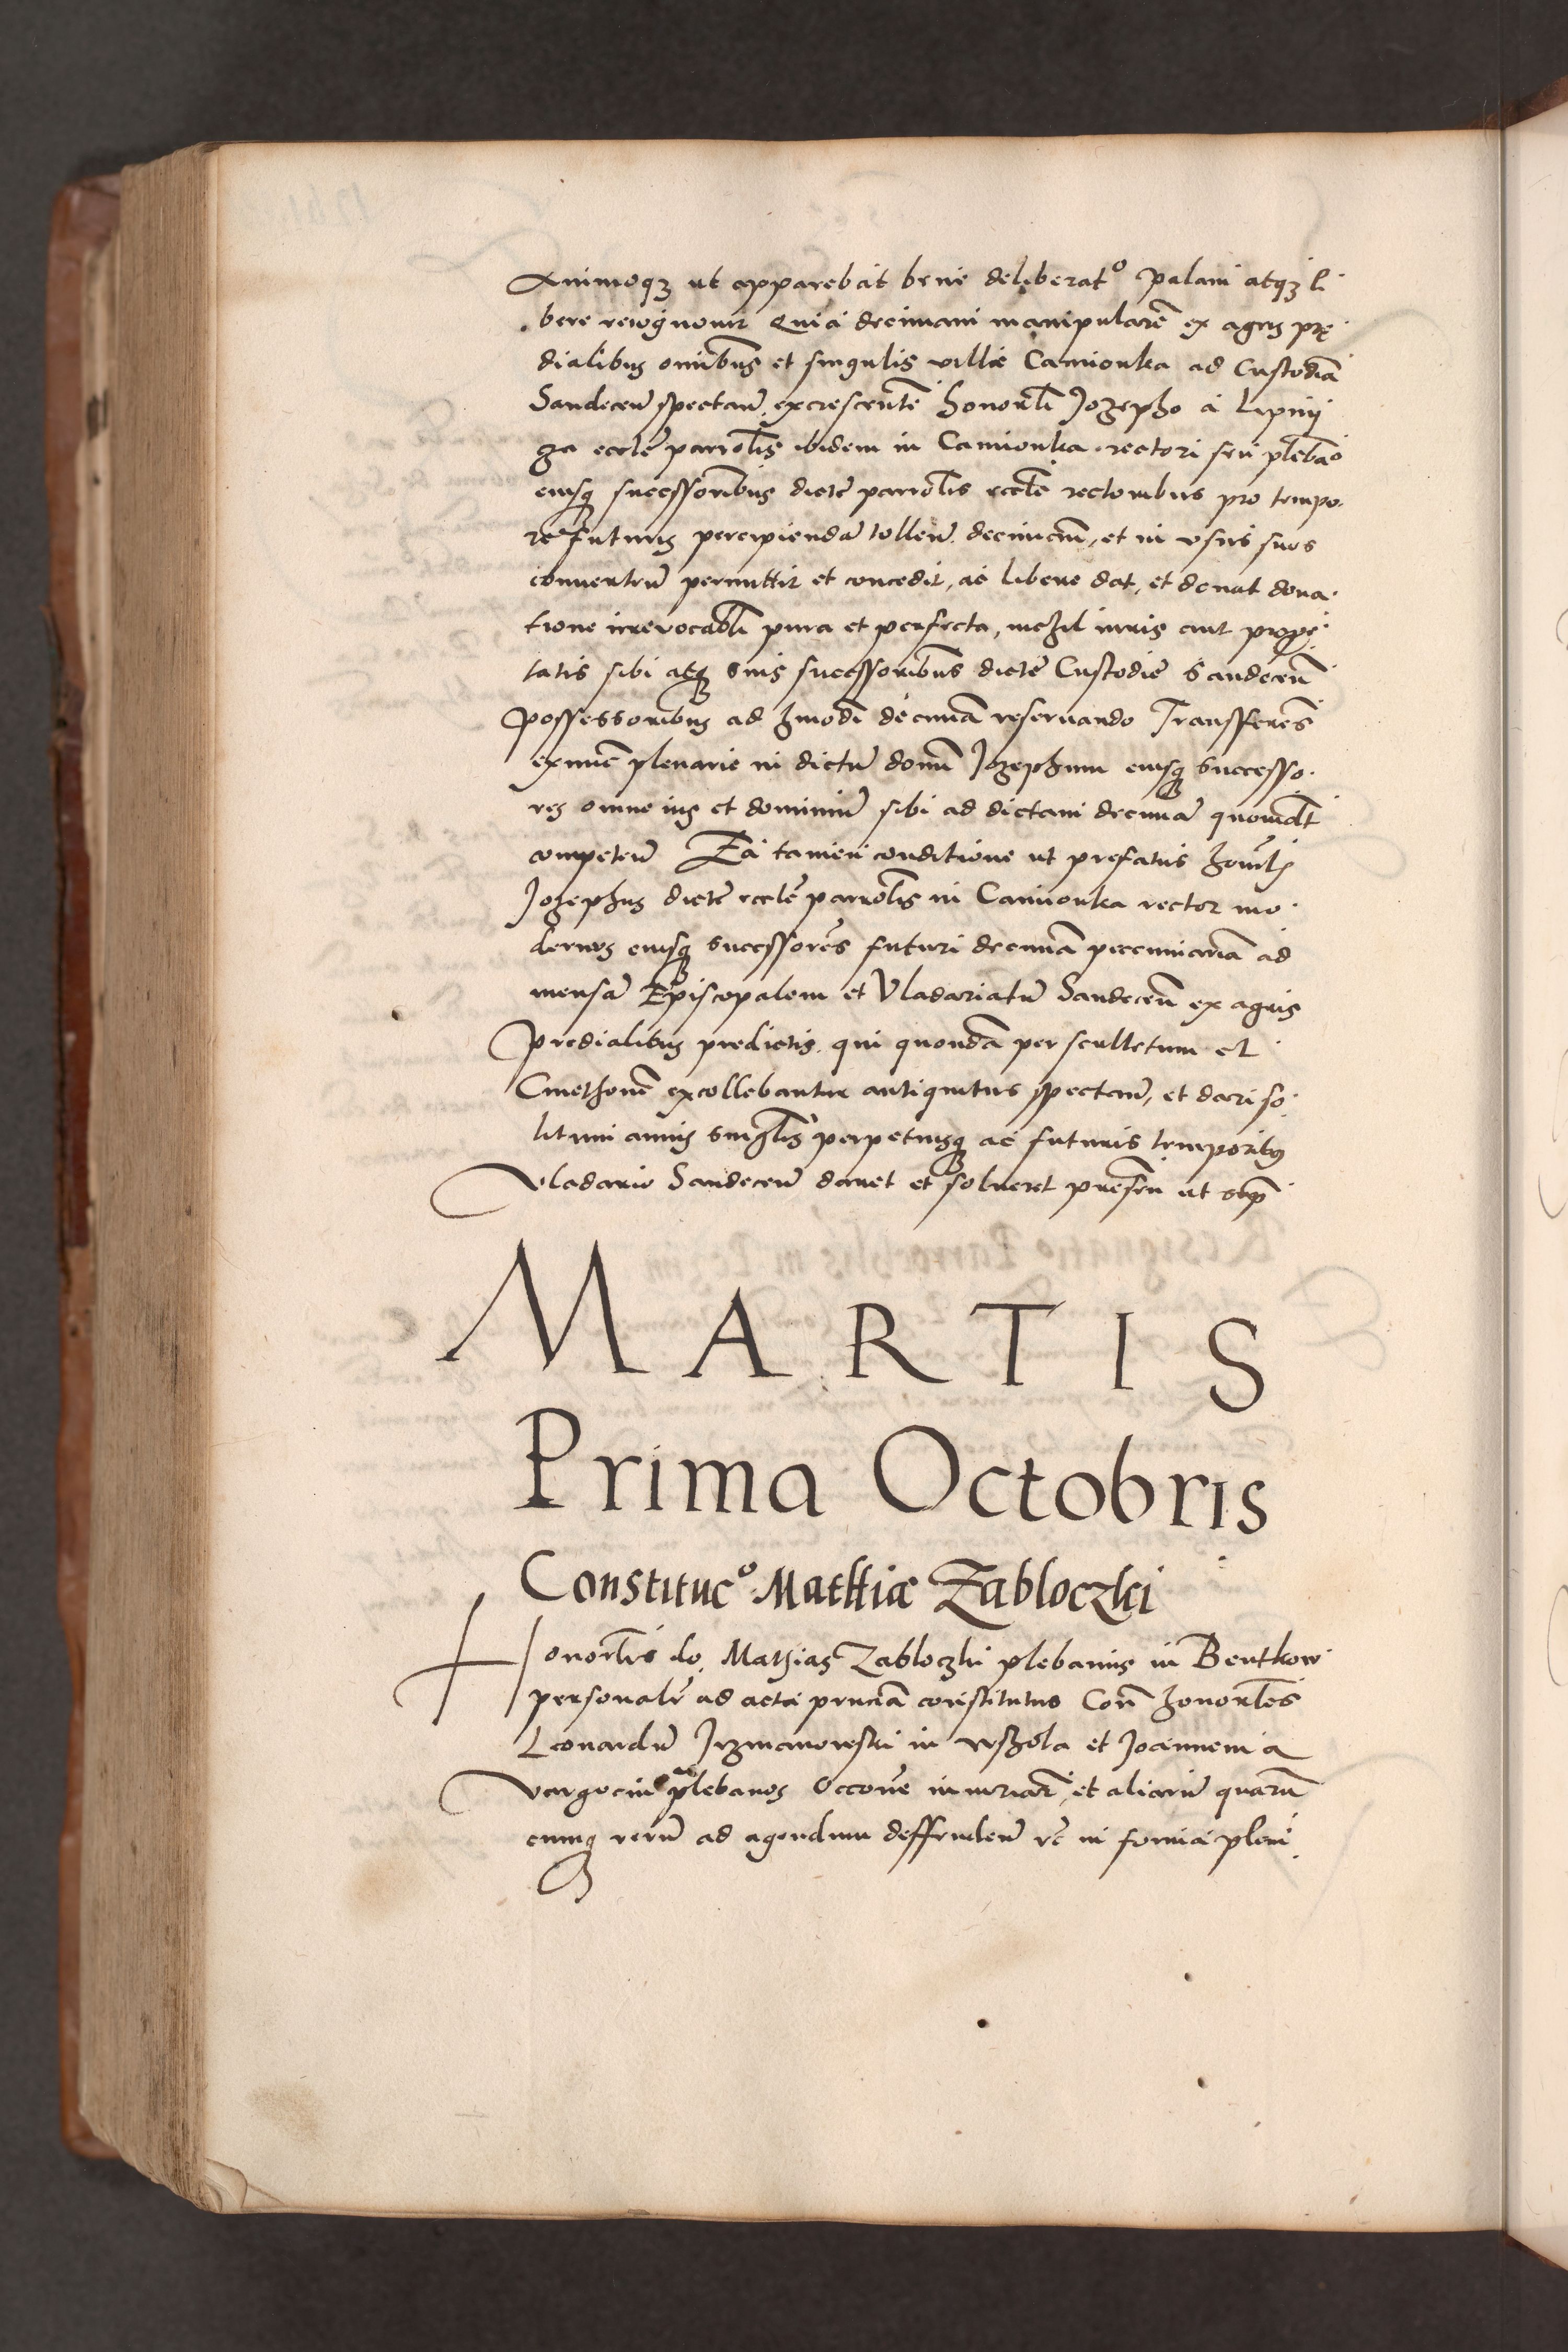 Animoqʒ ut apparebat bene deliberatº palam atqʒ li
bere recognouit Quia decimam manipularē ex agris prę
dialibus omībus et singulis villæ Camionka ad Custodiā
Sandeceñ spectañ excrescentē honorłi Jozepho a Lipnij
ga eccłē parrołis ibidem in Camionka rectori seu plebāo
eiusqʒ successoribus dictē parrołis eccłē rectoribus pro tempo
re futuris percipiendā tolleñ decimañ, et in vsus suos
conuerteñ permittit et concedit, ac libere dat, et donat dona
tione irreuocabłi pura et perfecta, nichil iuris aut propē
tatis sibi atqʒ suis successoribus dictē Custodiē Sandeceñ
possessoribus ad hmōdi decimā reseruando Transferēs
exnūc plenarie in dictū domū Jozephum eiusqʒ successo
res omne ius et dominiū sibi ad dictam decimā quomołt
competeñ Ea tamen conditione ut prefatus honorłis
Jozephus dictē eccłē parrołis in Camionka rector mo
dernus eiusqʒ successores futuri decimā pecuniariā ad
mensā Episcopalem et Vladariatū Sandeceñ ex agris
predialibus predictis qui quondā per scultetum et
Cmethonē excollebantur antiquitus spectañ, et dari so
litam annis singłis perpetuisqʒ ac futuris temporibus
vladario Sandeceñ daret et solueret pñtibus ut supͣ
MARTIS
Prima Octobris
Constitucº Matthiæ Zabloczki
Honorłis do. Mathias Zabloczki plebanus in Bentkow
personalr̄ ad acta pñciā constitutus Coñ honorłes
Leonardū Jrzmanowski in Wszola et Joannem a
vargocin plebanos Occoñe iniuriar̄, et aliarū quarū
cunqʒ rerū ad agendum deffendeñ rc̄ in forma pleni